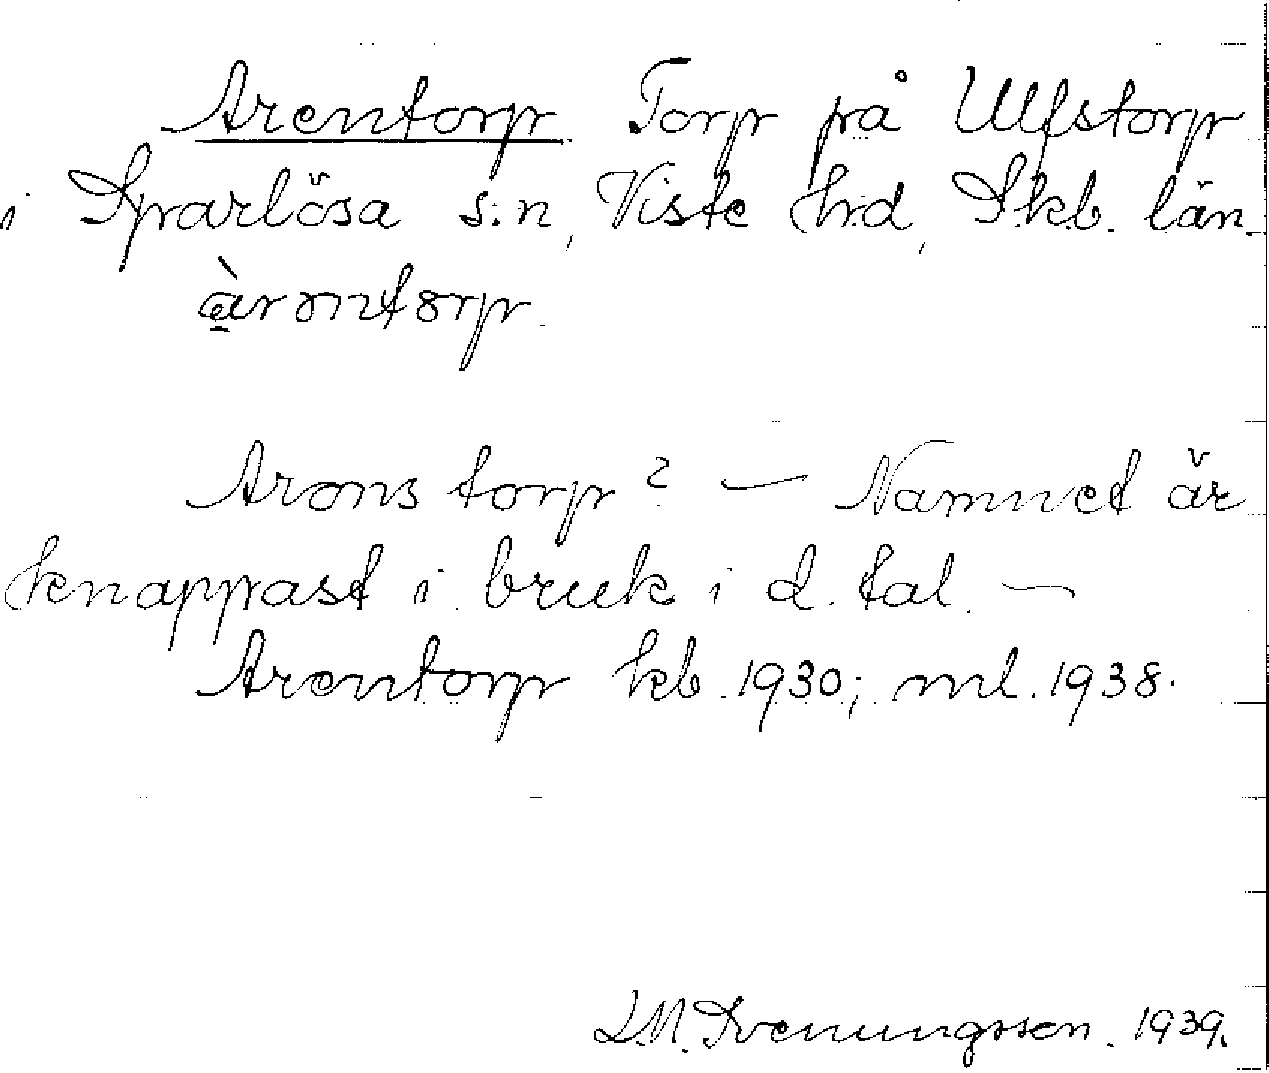 Arentorp. Torp på Ulfstorp
i Sparlösa s:n, Viste hd, Skb. län.
àrontorp.
Arons torp? — Namnet är
knappast i bruk i d. tal. —
Arentorp kb. 1930; ml. 1938.
L.M. Svenungsson. 1939.